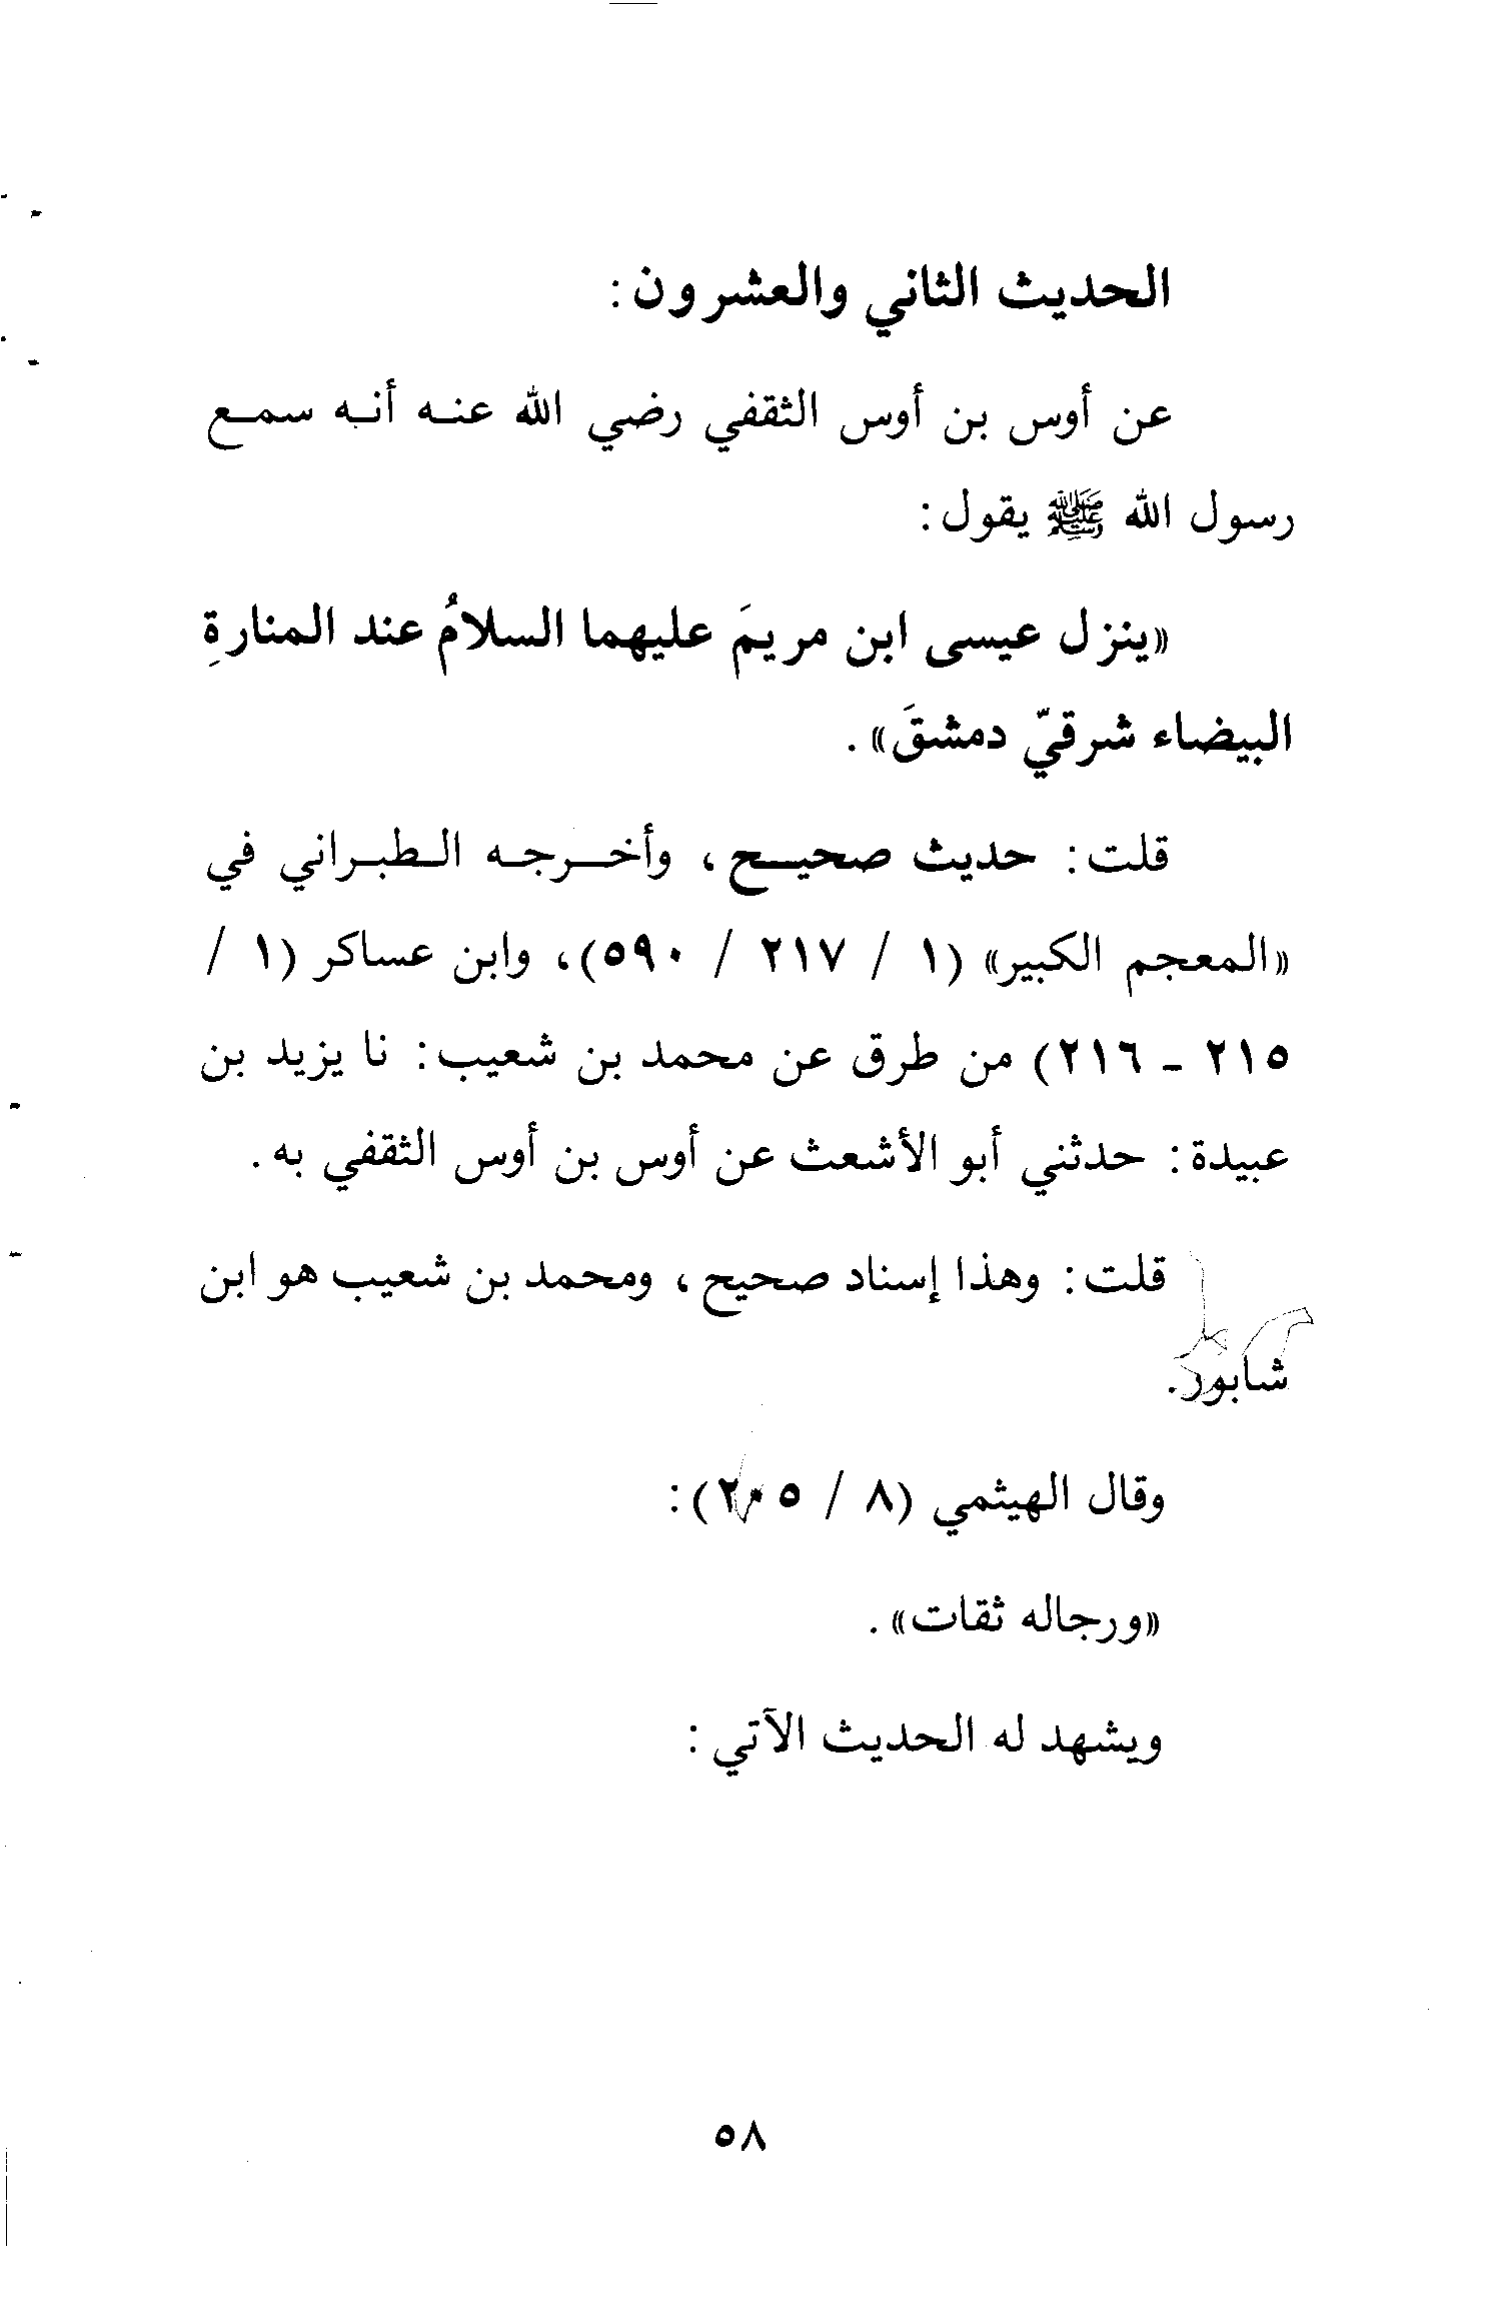 الحديث الثاني والعشرون:
عن أوس بن أوس الثقفي رضي الله عنه أنه سمع
رسول الله ﷺ يقول:
«ينزل عيسى ابن مريمَ عليهما السلامُ عند المنارةِ
البيضاء شرقيّ دمشقَ».
قلت: حديث صحيح، وأخرجه الطبراني في
«المعجم الكبير» (١ / ٢١٧ / ٥٩٠)، وابن عساكر (١ /
٢١٥ - ٢١٦) من طرق عن محمد بن شعيب: نا يزيد بن
عبيدة: حدثني أبو الأشعث عن أوس بن أوس الثقفي به.
قلت: وهذا إسناد صحيح، ومحمد بن شعيب هو ابن
شابور.
وقال الهيثمي (٨ / ٢٠٥):
«ورجاله ثقات».
ويشهد له الحديث الآتي:
٥٨